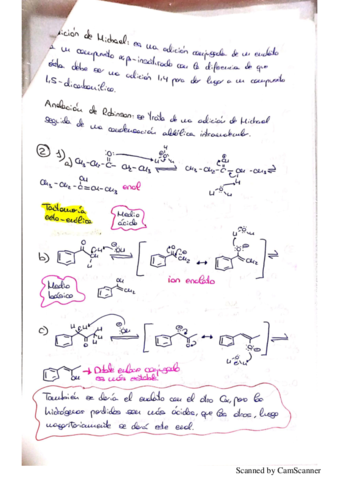 ición de Michael: es una adición conjugada de un enolato
a un compuesto α,β-insaturado con la diferencia de que
ésta debe ser una adición 1,4 para dar lugar a un compuesto
1,5-dicarbonílico.
Anelación de Robinson: se trata de una adición de Michael
seguida de una condensación aldólica intramolecular.
② 1)
a) CH₃-CH₂-C-CH₂-CH₃
CH₃-CH₂-C=CH-CH₃ enol
Tautomería
ceto-enólica
Medio
ácido
b)
Medio
básico
ion enolato
c)
Doble enlace conjugado
es más estable
También se daría el enolato con el otro Cα, pero los
hidrógenos perdidos son más ácidos que los otros, luego
mayoritariamente se dará este enol.
Scanned by CamScanner